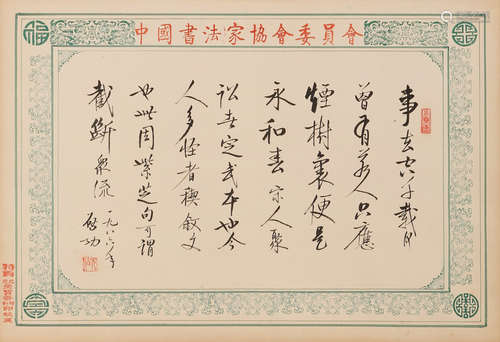 中國書法家協會委員會
事去空千載何
曾有若人只應
煙樹裏便是
永和春宋人聚
訟者定武本也今
人多怪者稧敘文
也此周紫芝句可謂
截斷眾流
一九八六年
啟功